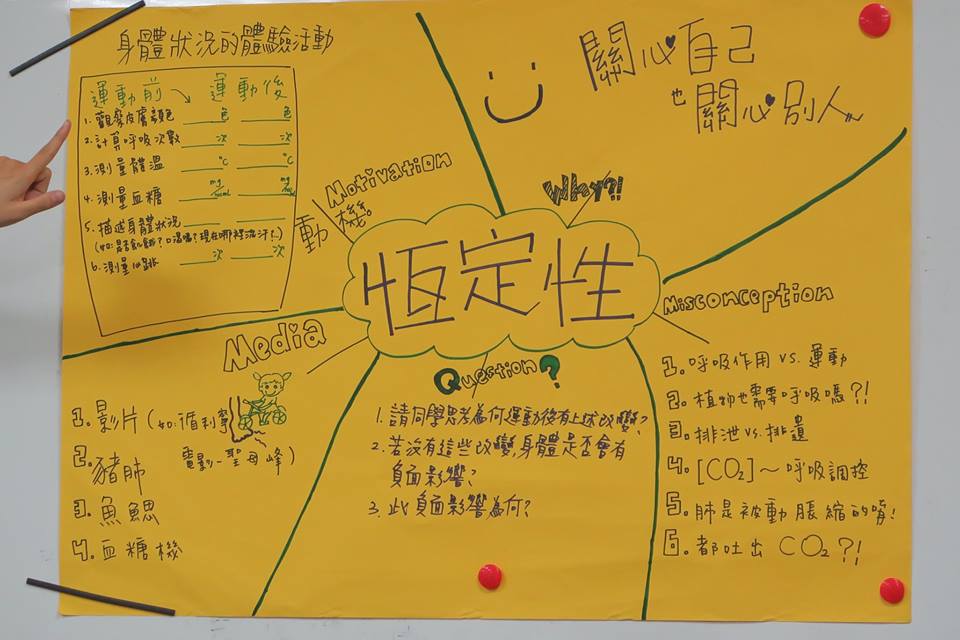 身體狀況的體驗活動
運動前 → 運動後
1. 觀察皮膚顏色 ___色 ___色
2. 計算呼吸次數 ___次 ___次
3. 測量體溫 ___°C ___°C
4. 測量血糖 ___mg/ ___mg/
5. 描述身體狀況
(如:是否飢餓?口渴嗎?現在哪裡流汗?...)
6. 測量心跳 ___次 ___次
Motivation
動機
Why?!
關心自己
也關心別人
恆定性
Media
1. 影片 (如:循利寧
電影-聖母峰)
2. 豬肺
3. 魚鰓
4. 血糖機
Question?
1. 請同學思考為何運動後有上述改變?
2. 若沒有這些改變,身體是否會有
負面影響?
3. 此負面影響為何?
Misconception
1. 呼吸作用 vs. 運動
2. 植物也需要呼吸嗎?!
3. 排泄 vs. 排遺
4. [CO2]~呼吸調控
5. 肺是被動脹縮的唷!
6. 都吐出 CO2?!